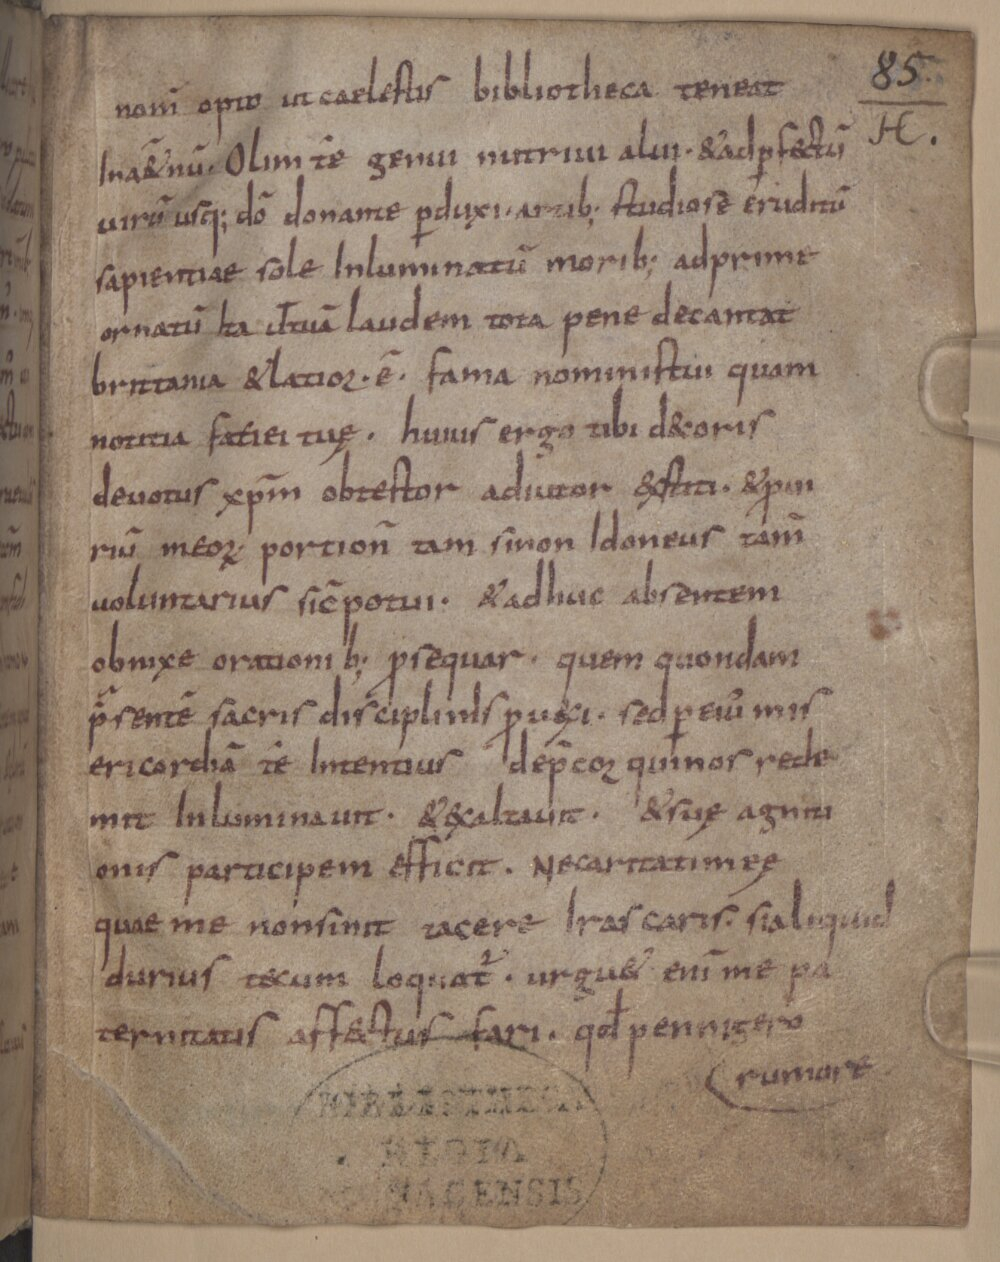 85.
H.
nom̄ opto ut caelestis bibliotheca teneat
Inæ&nū. Olim tē genui nutriui alui. &adp̱fectū
uirū usq; dō donante p̱duxi. artib; studiosē eruditū
sapientiae sole Inluminatū morib; adprime
ornatū Ita ut tuā laudem tota pene decantat
brittania &latioꝝ. ē. fama nominis tui quam
notitia faciei tuę. huius ergo tibi d&oris
deuotus xp̄m obtestor adiutor &stiti. &ꝓ ui
riū meoꝝ portion̄ tam si non Idoneus tam̄
uoluntarius sic̄ potui. &adhuc absentem
obnixe orationib; ꝓsequar. quem quondam
p̄sentē sacris disciplinis ꝓuexi. sed p̱ eiū mis
ericordiā tē Intentius dep̄coꝝ qui nos rede
mit Inluminauit. &exaltauit. &suę agniti
onis participem efficit. Ne caritati meę
quae me non sinit tacere Irascaris. si aliquid
durius tecum loquat̄. urgu& eni me pa
ternitatis affectus fari. qđ pennigero
rumore
BIBLIOTHECA
REGIA
MONACENSIS